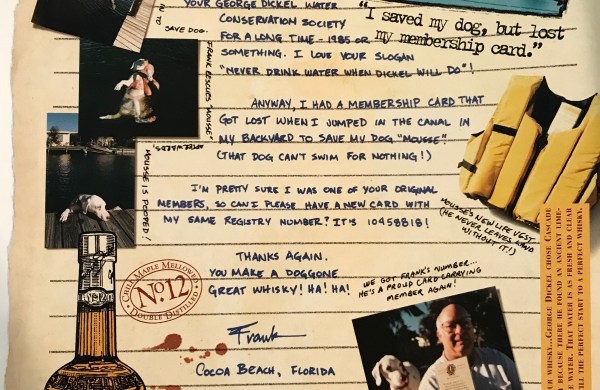 YOUR GEORGE DICKEL WATER
CONSERVATION SOCIETY
FOR A LONG TIME - 1985 OR
SOMETHING. I LOVE YOUR SLOGAN
"NEVER DRINK WATER WHEN DICKEL WILL DO"!
"I saved my dog, but lost
my membership card."
IN TO
SAVE DOG.
FRANK RESCUES "MOUSSE"
AFTERWARDS,
MOUSSE IS POOPED!
ANYWAY, I HAD A MEMBERSHIP CARD THAT
GOT LOST WHEN I JUMPED IN THE CANAL IN
MY BACKYARD TO SAVE MY DOG "MOUSSE"
(THAT DOG CAN'T SWIM FOR NOTHING!)
I'M PRETTY SURE I WAS ONE OF YOUR ORIGINAL
MEMBERS, SO CAN I PLEASE HAVE A NEW CARD WITH
MY SAME REGISTRY NUMBER? IT'S 10458818!
MOUSSE'S NEW LIFE VEST
(HE NEVER LEAVES LAND
WITHOUT IT!)
THANKS AGAIN.
YOU MAKE A DOGGONE
GREAT WHISKY! HA! HA!
CHILL MAPLE MELLOWED
No. 12
DOUBLE DISTILLED
WE GOT FRANK'S NUMBER...
HE'S A PROUD CARD CARRYING
MEMBER AGAIN!
Frank
COCOA BEACH, FLORIDA
WHISKY...GEORGE DICKEL CHOSE CASCADE
BECAUSE THERE HE FOUND AN ANCIENT LIME-
WATER. THAT WATER IS AS FRESH AND CLEAR
THE PERFECT START TO A PERFECT WHISKY.